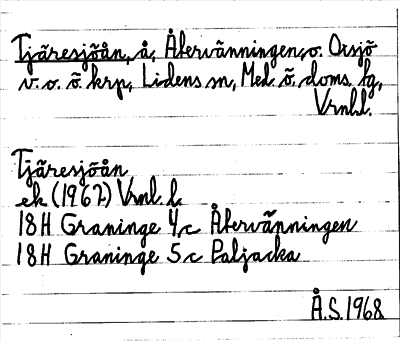 Tjäresjöån, å, Återvänningen, o. Oxsjö
v. o. ö. krp, Lidens sn, Med. ö. doms. fg,
Vrnl.l.
Tjäresjöån
ek (1967) Vrnl. l.
18H Graninge 4c Återvänningen
18H Graninge 5c Paljacka
Å.S. 1968